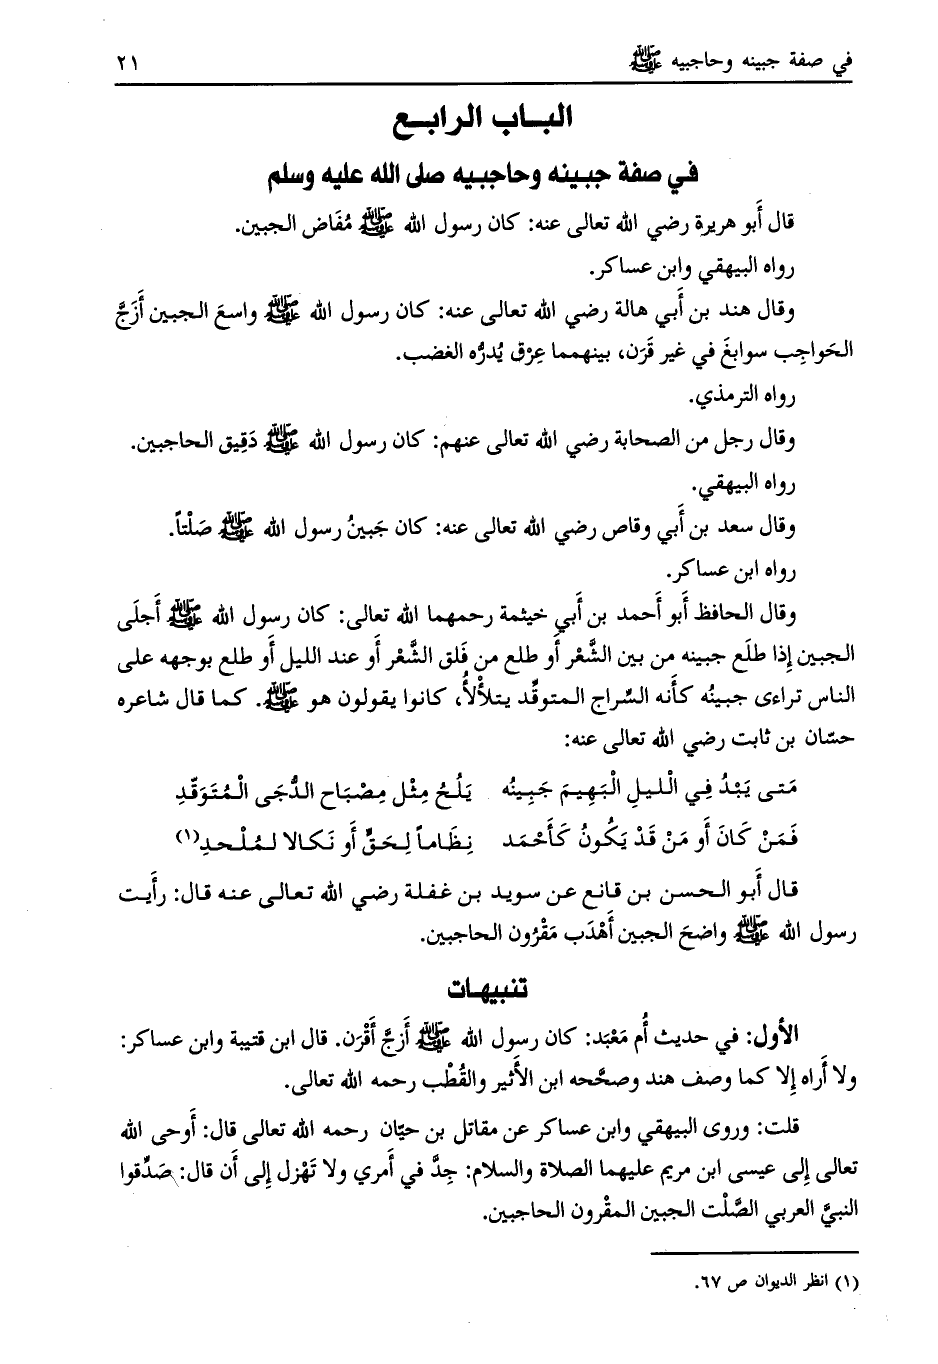 في صفة جبينه وحاجبيه ﷺ ٢١
الباب الرابع
في صفة جبينه وحاجبيه صلى الله عليه وسلم
قال أَبو هريرة رضي الله تعالى عنه: كان رسول الله ﷺ مُفَاض الجبين.
رواه البيهقي وابن عساكر.
وقال هند بن أَبي هالة رضي الله تعالى عنه: كان رسول الله ﷺ واسعَ الجبين أَزَجَّ
الحَواجِب سوابغَ في غير قَرَن، بينهمما عِرْق يُدرُّه الغضب.
رواه الترمذي.
وقال رجل من الصحابة رضي الله تعالى عنهم: كان رسول الله ﷺ دَقِيق الحاجبين.
رواه البيهقي.
وقال سعد بن أَبي وقاص رضي الله تعالى عنه: كان جَبينُ رسول الله ﷺ صَلْتاً.
رواه ابن عساكر.
وقال الحافظ أَبو أَحمد بن أَبي خيثمة رحمهما الله تعالى: كان رسول الله ﷺ أَجلَى
الجبين إِذا طلَع جبينه من بين الشَّعْر أَو طلع من فَلق الشَّعْر أَو عند الليل أَو طلع بوجهه على
الناس تراءى جبينُه كأَنه السِّراج المتوقِّد يتلأْلأُ، كانوا يقولون هو ﷺ. كما قال شاعره
حسّان بن ثابت رضي الله تعالى عنه:
مَتى يَبْدُ فِي الْليلِ الْبَهِيمَ جَبِينُه يَلُحْ مِثْل مِصْبَاح الدُّجَى الْمُتَوَقّدِ
فَمَنْ كَانَ أَو مَنْ قَدْ يَكُونُ كَأَحْمَد نِظَاماً لِحَقٍّ أَو نَكالا لمُلْحدِ(١)
قال أَبو الحسن بن قانع عن سويد بن غفلة رضي الله تعالى عنه قال: رأَيت
رسول الله ﷺ واضحَ الجبين أَهْدَب مَقْرُون الحاجبين.
تنبيهات
الأول: في حديث أُم مَعْبَد: كان رسول الله ﷺ أَزجَّ أَقْرَن. قال ابن قتيبة وابن عساكر:
ولا أَراه إِلا كما وصف هند وصحَّحه ابن الأَثير والقُطْب رحمه الله تعالى.
قلت: وروى البيهقي وابن عساكر عن مقاتل بن حيّان رحمه الله تعالى قال: أَوحى الله
تعالى إِلى عيسى ابن مريم عليهما الصلاة والسلام: جِدَّ في أَمري ولا تَهْزل إِلى أَن قال: صَدِّقوا
النبيَّ العربي الصَّلْت الجبين المقْرون الحاجبين.
(١) انظر الديوان ص ٦٧.